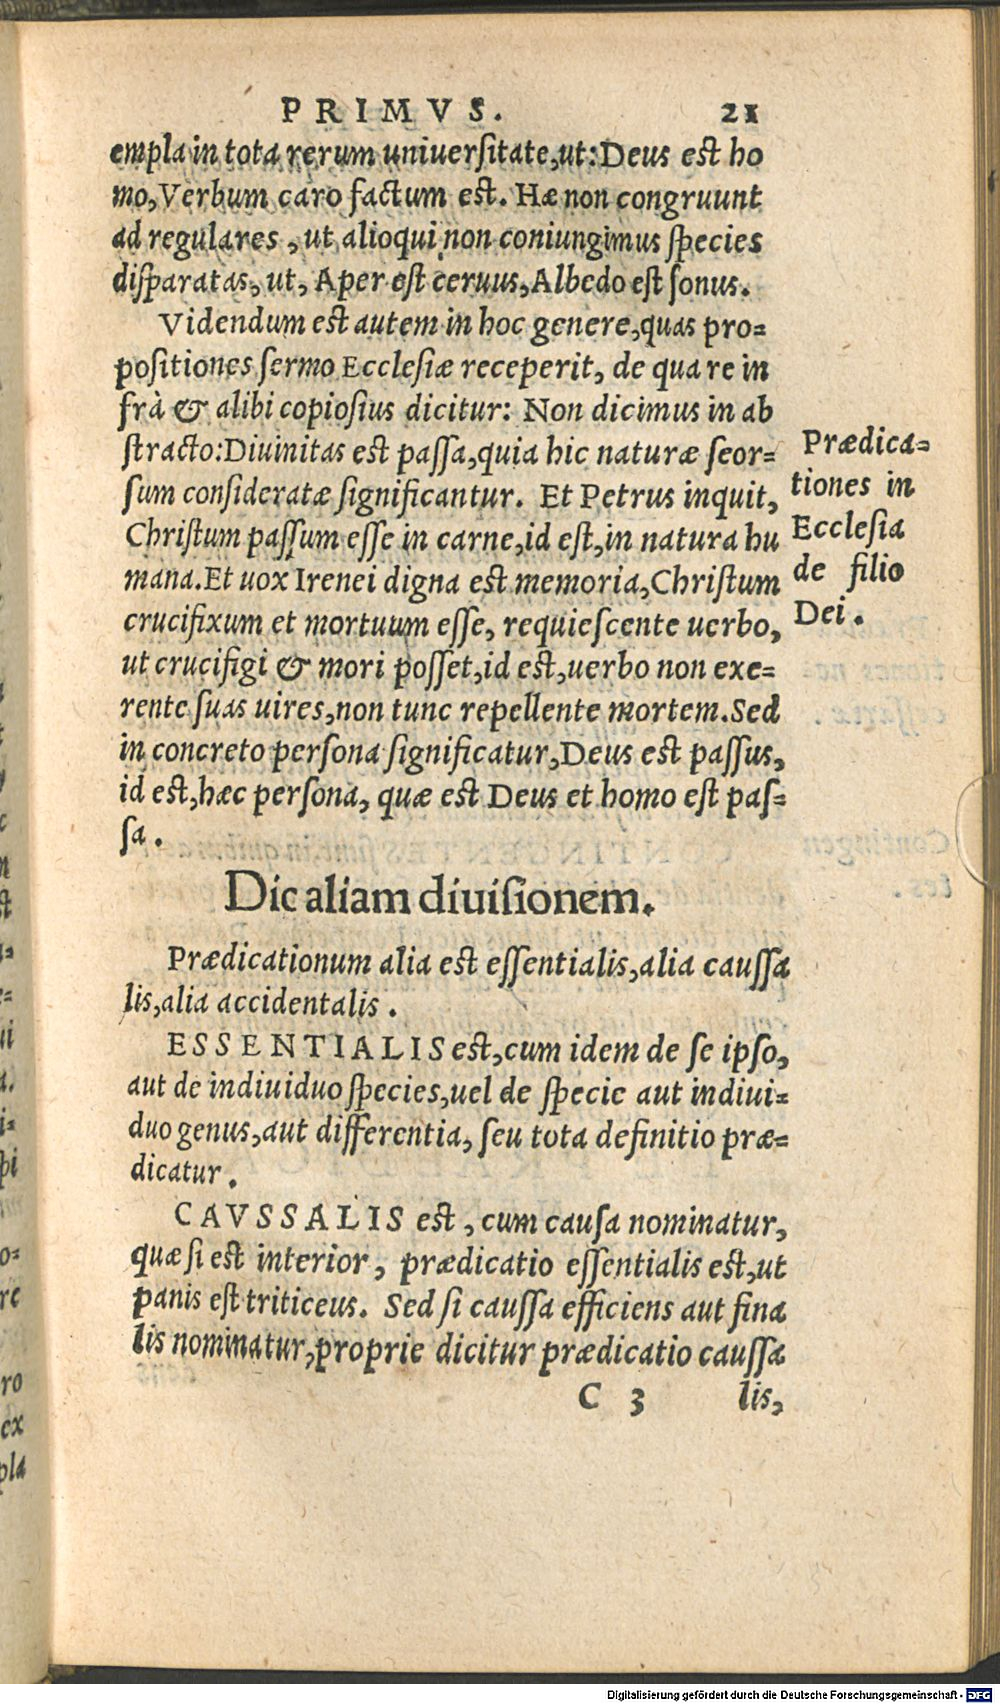 PRIMVS. 21
empla in tota rerum uniuerſitate,ut:Deus est ho
mo,Verbum caro factum est. Hæ non congruunt
ad regulares, ut alioqui non coniungimus ſpecies
diſparatas, ut, Aper est ceruus,Albedo est ſonus.
Videndum est autem in hoc genere,quas pro=
poſitiones ſermo Eccleſiæ receperit, de qua re in
frà & alibi copioſius dicitur: Non dicimus in ab
ſtracto:Diuinitas est paſſa,quia hic naturæ ſeor=
ſum conſideratæ ſignificantur. Et Petrus inquit,
Chriſtum paſſum eſſe in carne,id eſt,in natura hu
mana.Et uox Irenei digna est memoria,Chriſtum
crucifixum et mortuum eſſe, requieſcente uerbo,
ut crucifigi & mori poſſet,id eſt,uerbo non exe=
rente ſuas uires,non tunc repellente mortem.Sed
in concreto perſona ſignificatur,Deus est paſſus,
id eſt,hæc perſona, quæ est Deus et homo eſt paſ=
ſa.
Prædica=
tiones in
Eccleſia
de filio
Dei.
Dic aliam diuiſionem.
Prædicationum alia est eſſentialis,alia cauſſa
lis,alia accidentalis.
ESSENTIALIS est,cum idem de ſe ipſo,
aut de indiuiduo ſpecies,uel de ſpecie aut indiui=
duo genus,aut differentia, ſeu tota definitio præ=
dicatur.
CAVSSALIS est, cum cauſa nominatur,
quæ ſi est interior, prædicatio eſſentialis est,ut
panis eſt triticeus. Sed ſi cauſſa efficiens aut fina
lis nominatur,proprie dicitur prædicatio cauſſa
C 3 lis,
Digitalisierung gefördert durch die Deutsche Forschungsgemeinschaft - DFG